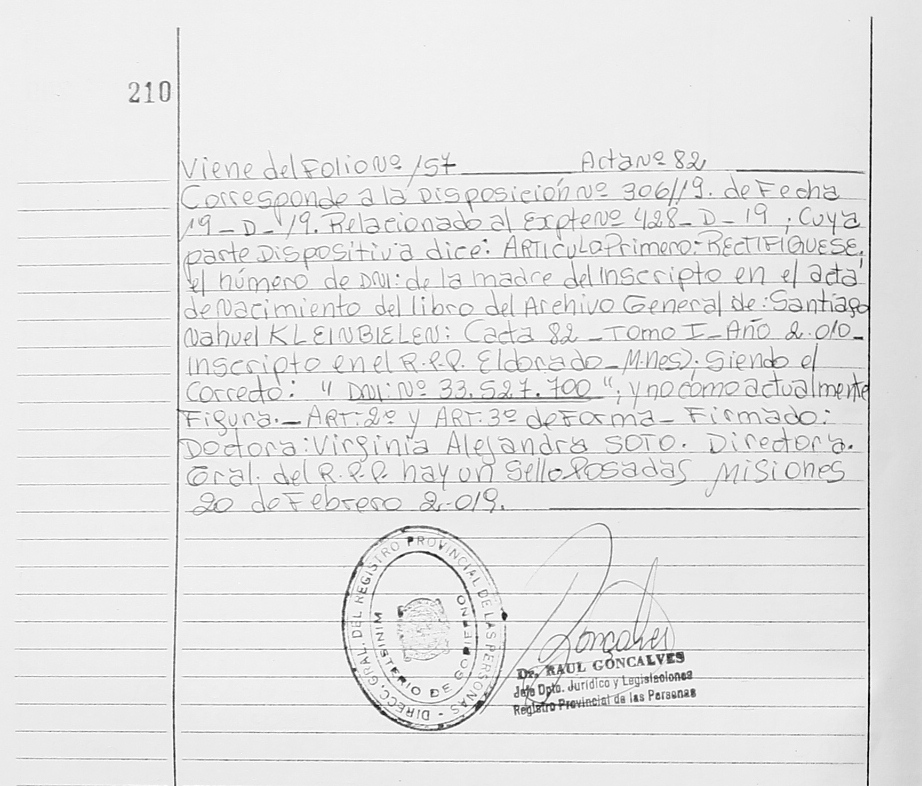 210
Viene del Folio Nº 157 Acta Nº 82
Corresponde a la Disposición Nº 306/19. de Fecha
19-D-19. Relacionado al Expte Nº 428-D-19; Cuya
parte Dispositiva dice: ARTICULO Primero: RECTIFIQUESE,
el número de DNI: de la madre del Inscripto en el acta
de Nacimiento del libro del Archivo General de: Santiago
Nahuel KLEINBIELEN: Cacta 82 - Tomo I - Año 2.010-
Inscripto en el R.P.P. Eldorado - M.nes); Siendo el
Correcto: " DNI: Nº 33.527.700 "; y no como actualmente
Figura.- ART: 2º y ART: 3º de Forma - Firmado:
Doctora: Virginia Alejandra SOTO. Directora.
Gral. del R.P.P. hay un Sello Posadas Misiones
20 de Febrero 2.019.
DIRECC. GRAL. DEL REGISTRO PROVINCIAL DE LAS PERSONAS -
MINISTERIO DE GOBIERNO
Goncalves
Dr. RAUL GONCALVES
Jefe Dpto. Jurídico y Legislaciones
Registro Provincial de las Personas